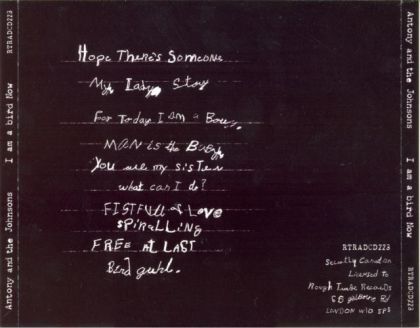 Antony and the Johnsons I am a bird Now RTRADCD223
Hope There's Someone
My Lady Story
For Today I Am a Boy
MAN is the Baby
You are my sister
what can I do?
FISTFULL of Love
SPIRALLING
FREE at LAST
Bird guhl.
RTRADCD223
Secretly Canadian
Licensed to
Rough Trade Records
66 golborne Rd
LONDON W10 5PS
Antony and the Johnsons I am a bird Now RTRADCD223